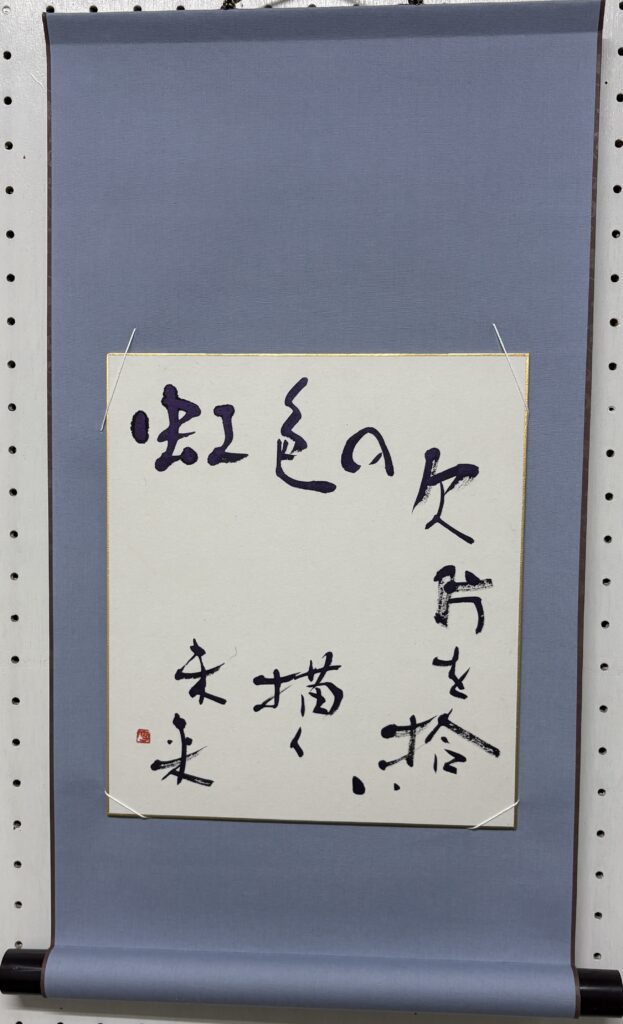 虹色の
欠片を拾い
描く
未来